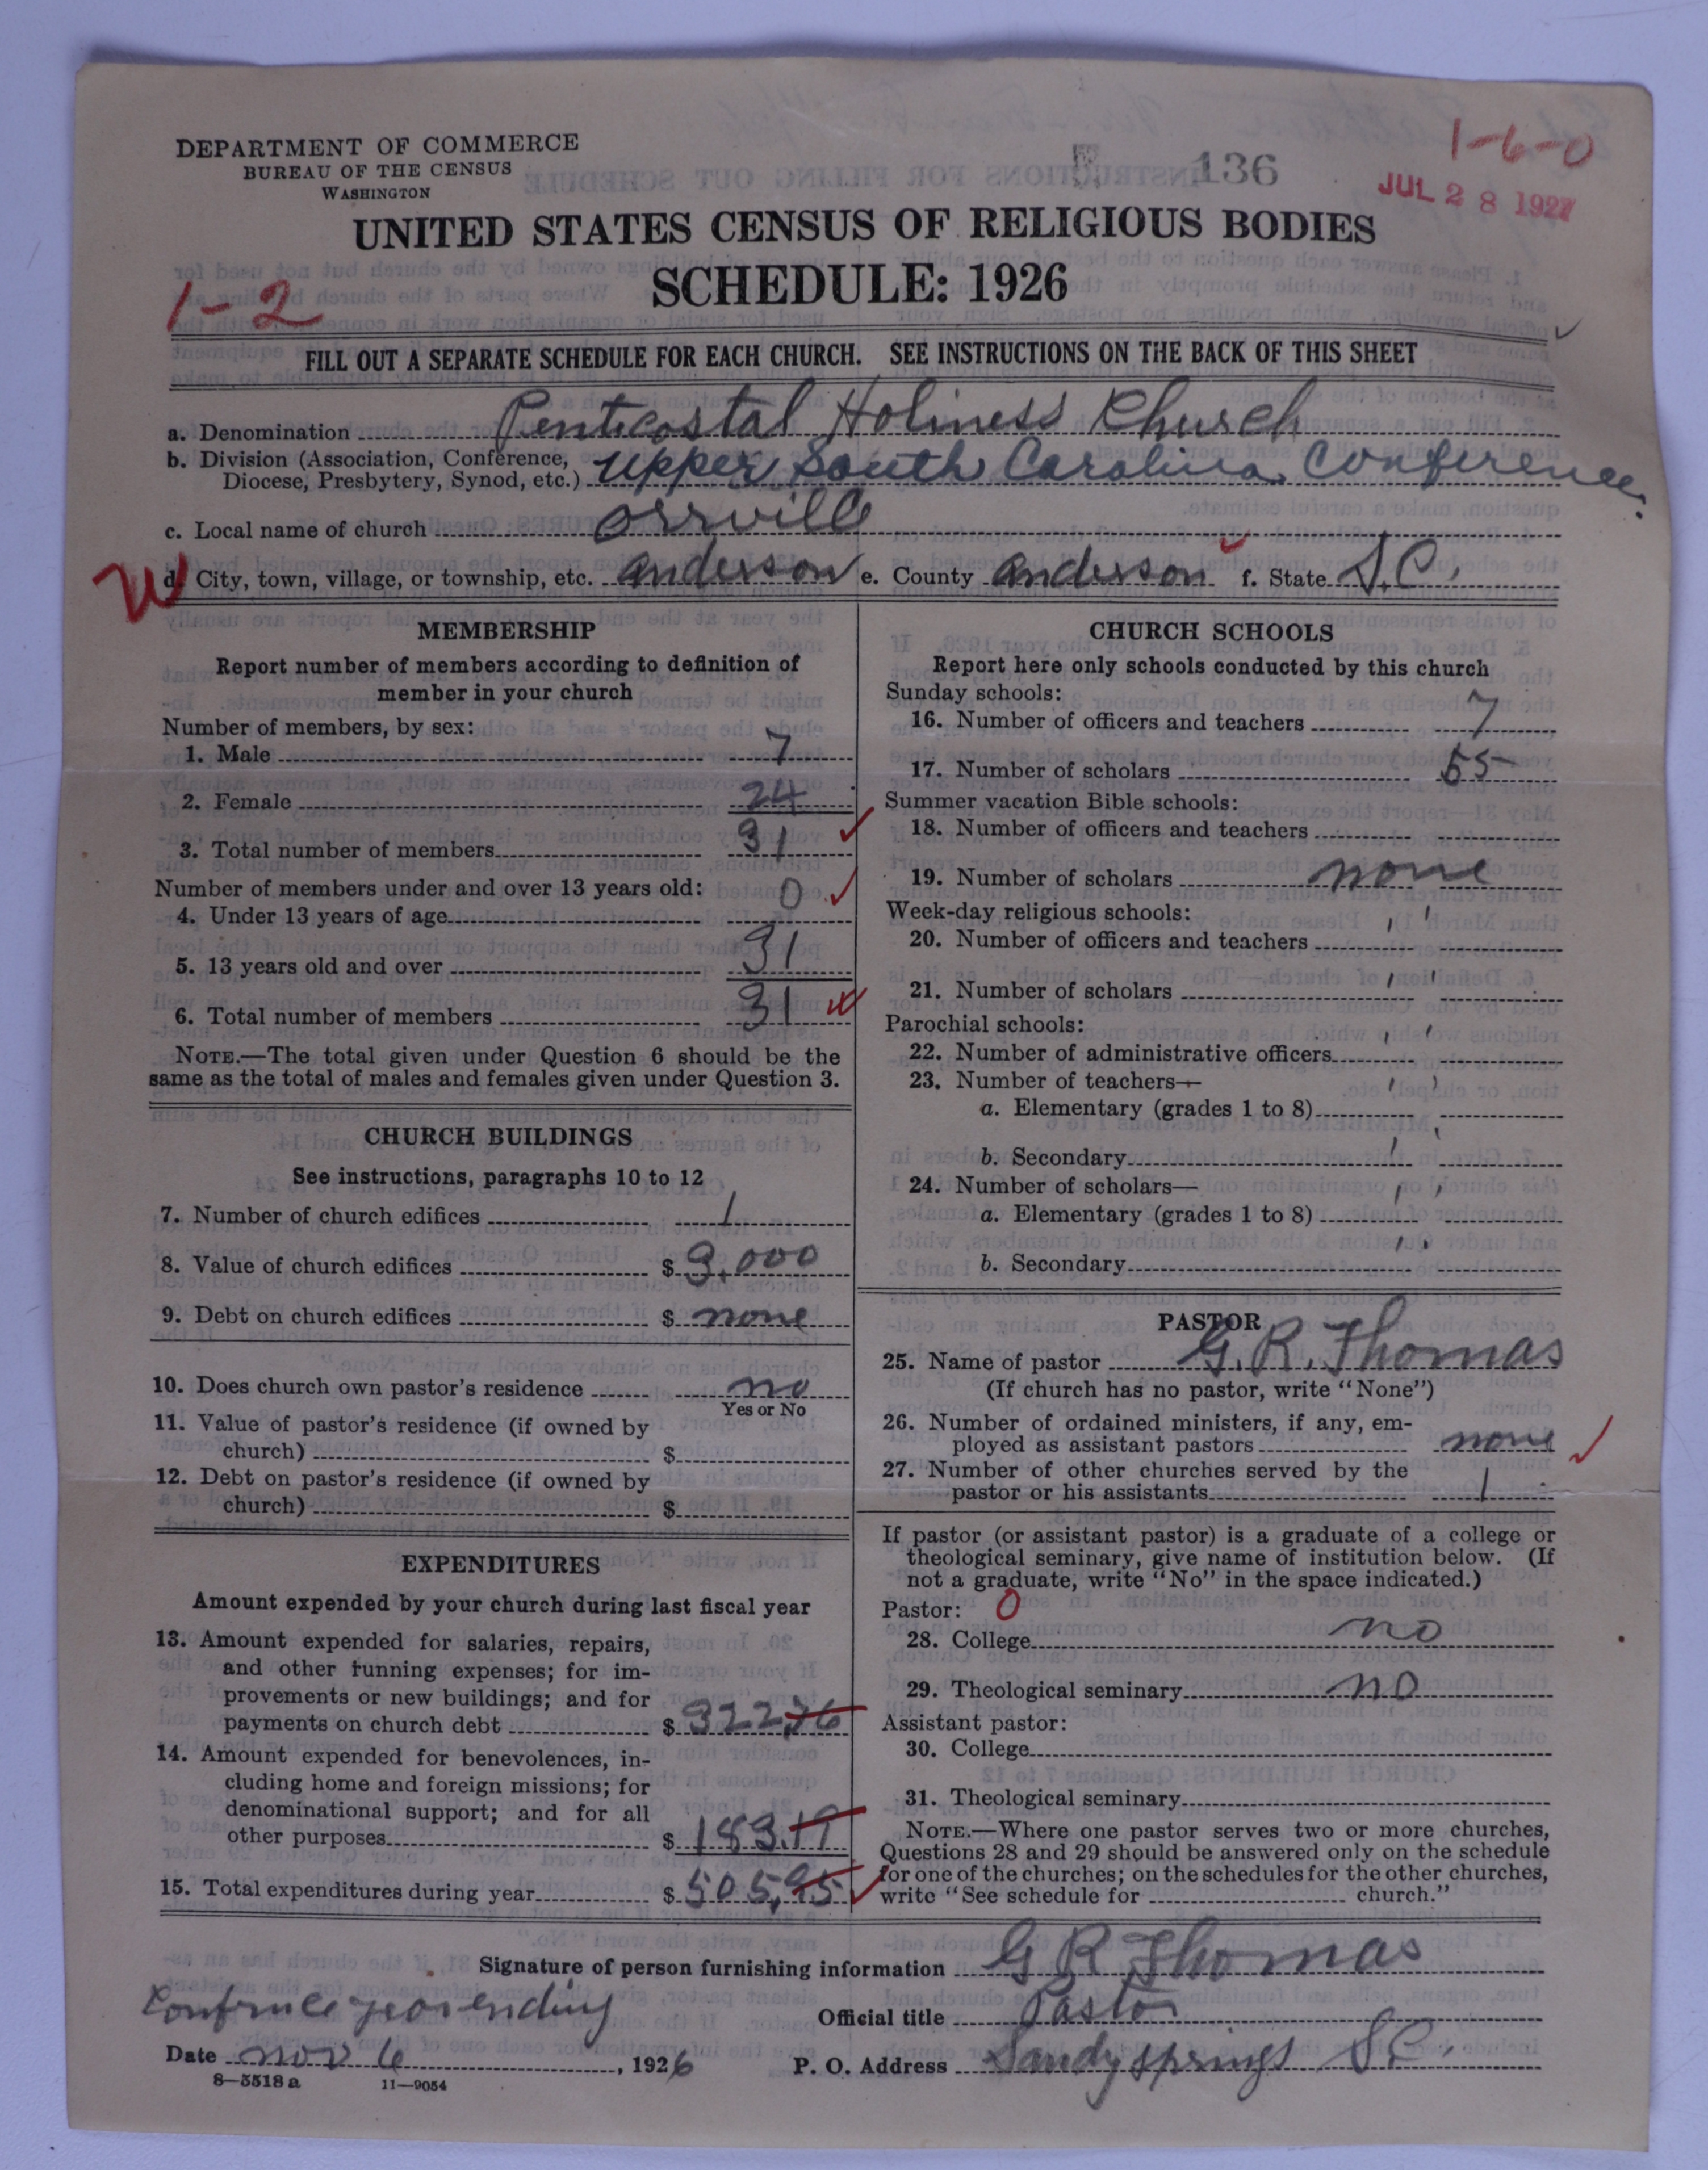 DEPARTMENT OF COMMERCE
BUREAU OF THE CENSUS
WASHINGTON
136
1-6-0
JUL 28 1927
UNITED STATES CENSUS OF RELIGIOUS BODIES
SCHEDULE: 1926
1-2
FILL OUT A SEPARATE SCHEDULE FOR EACH CHURCH. SEE INSTRUCTIONS ON THE BACK OF THIS SHEET
a. Denomination Pentecostal Holiness Church
b. Division (Association, Conference, Diocese, Presbytery, Synod, etc.) Upper South Carolina Conference.
c. Local name of church Orrville
W
d. City, town, village, or township, etc. Anderson e. County Anderson f. State S.C.
MEMBERSHIP
Report number of members according to definition of
member in your church
Number of members, by sex:
1. Male 7
2. Female 24
3. Total number of members 31
Number of members under and over 13 years old:
4. Under 13 years of age 0
5. 13 years old and over 31
6. Total number of members 31
NOTE.—The total given under Question 6 should be the
same as the total of males and females given under Question 3.
CHURCH BUILDINGS
See instructions, paragraphs 10 to 12
7. Number of church edifices 1
8. Value of church edifices $ 3,000
9. Debt on church edifices $ none
10. Does church own pastor's residence no
Yes or No
11. Value of pastor's residence (if owned by
church) $
12. Debt on pastor's residence (if owned by
church) $
EXPENDITURES
Amount expended by your church during last fiscal year
13. Amount expended for salaries, repairs,
and other running expenses; for im-
provements or new buildings; and for
payments on church debt $ 322,76
14. Amount expended for benevolences, in-
cluding home and foreign missions; for
denominational support; and for all
other purposes $ 183.19
15. Total expenditures during year $ 505,95
CHURCH SCHOOLS
Report here only schools conducted by this church
Sunday schools:
16. Number of officers and teachers 7
17. Number of scholars 55
Summer vacation Bible schools:
18. Number of officers and teachers
19. Number of scholars none
Week-day religious schools:
20. Number of officers and teachers ' '
21. Number of scholars ' '
Parochial schools:
22. Number of administrative officers ' '
23. Number of teachers—
a. Elementary (grades 1 to 8) ' '
b. Secondary ' '
24. Number of scholars—
a. Elementary (grades 1 to 8) ' '
b. Secondary ' '
PASTOR
25. Name of pastor G. R. Thomas
(If church has no pastor, write "None")
26. Number of ordained ministers, if any, em-
ployed as assistant pastors none
27. Number of other churches served by the
pastor or his assistants 1
If pastor (or assistant pastor) is a graduate of a college or
theological seminary, give name of institution below. (If
not a graduate, write "No" in the space indicated.)
Pastor: 0
28. College no
29. Theological seminary no
Assistant pastor:
30. College
31. Theological seminary
NOTE.—Where one pastor serves two or more churches,
Questions 28 and 29 should be answered only on the schedule
for one of the churches; on the schedules for the other churches,
write "See schedule for church."
Signature of person furnishing information G R Thomas
Confrnce year ending
Official title Pastor
Date nov 6, 1926
P. O. Address Sandy springs S.C.
8—5518 a 11—9054